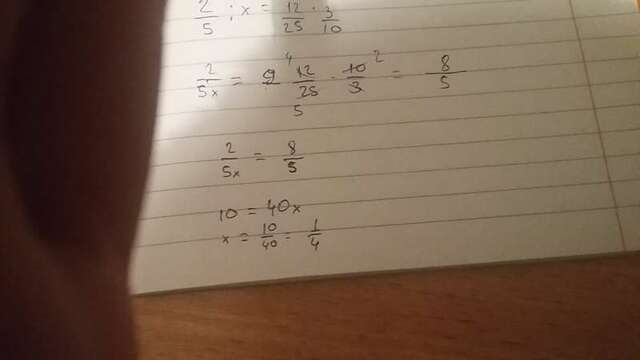 2/5 : x = 12/25 : 3/10
2/5x = 12/25 · 10/3 = 8/5
4 2 5
2/5x = 8/5
10 = 40x
x = 10/40 = 1/4